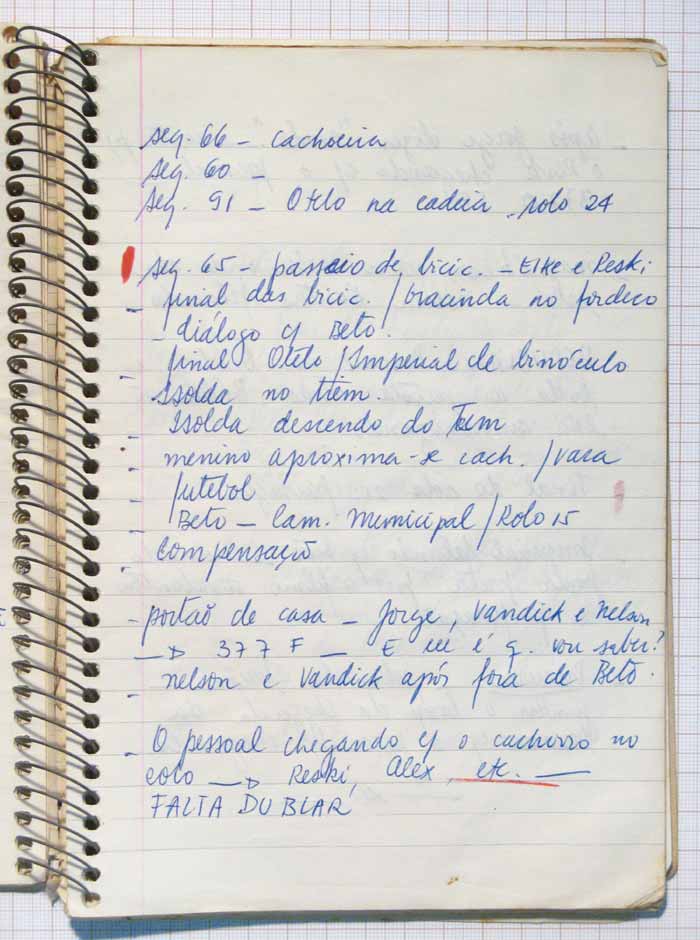 seq. 66 - cachoeira
seq. 60 -
seq. 91 - Otelo na cadeia. rolo 24
seq. 65 - passeio de bicic. - Elke e Reski
- final das bicic. / Gracinda no fordeco
- diálogo c/ Beto.
final Otelo / Imperial de binóculo
- Isolda no trem.
- Isolda descendo do Trem
- menino aproxima-se cach. / vara
- futebol
- Beto - Cam. Municipal / Rolo 15
- compensação
- portão de casa - Jorge, Vandick e Nelson
→ 377 F - E eu é q. vou saber?
- Nelson e Vandick após fora de Beto.
- O pessoal chegando c/ o cachorro no
colo → Reski, Alex, etc. —
FALTA DUBLAR